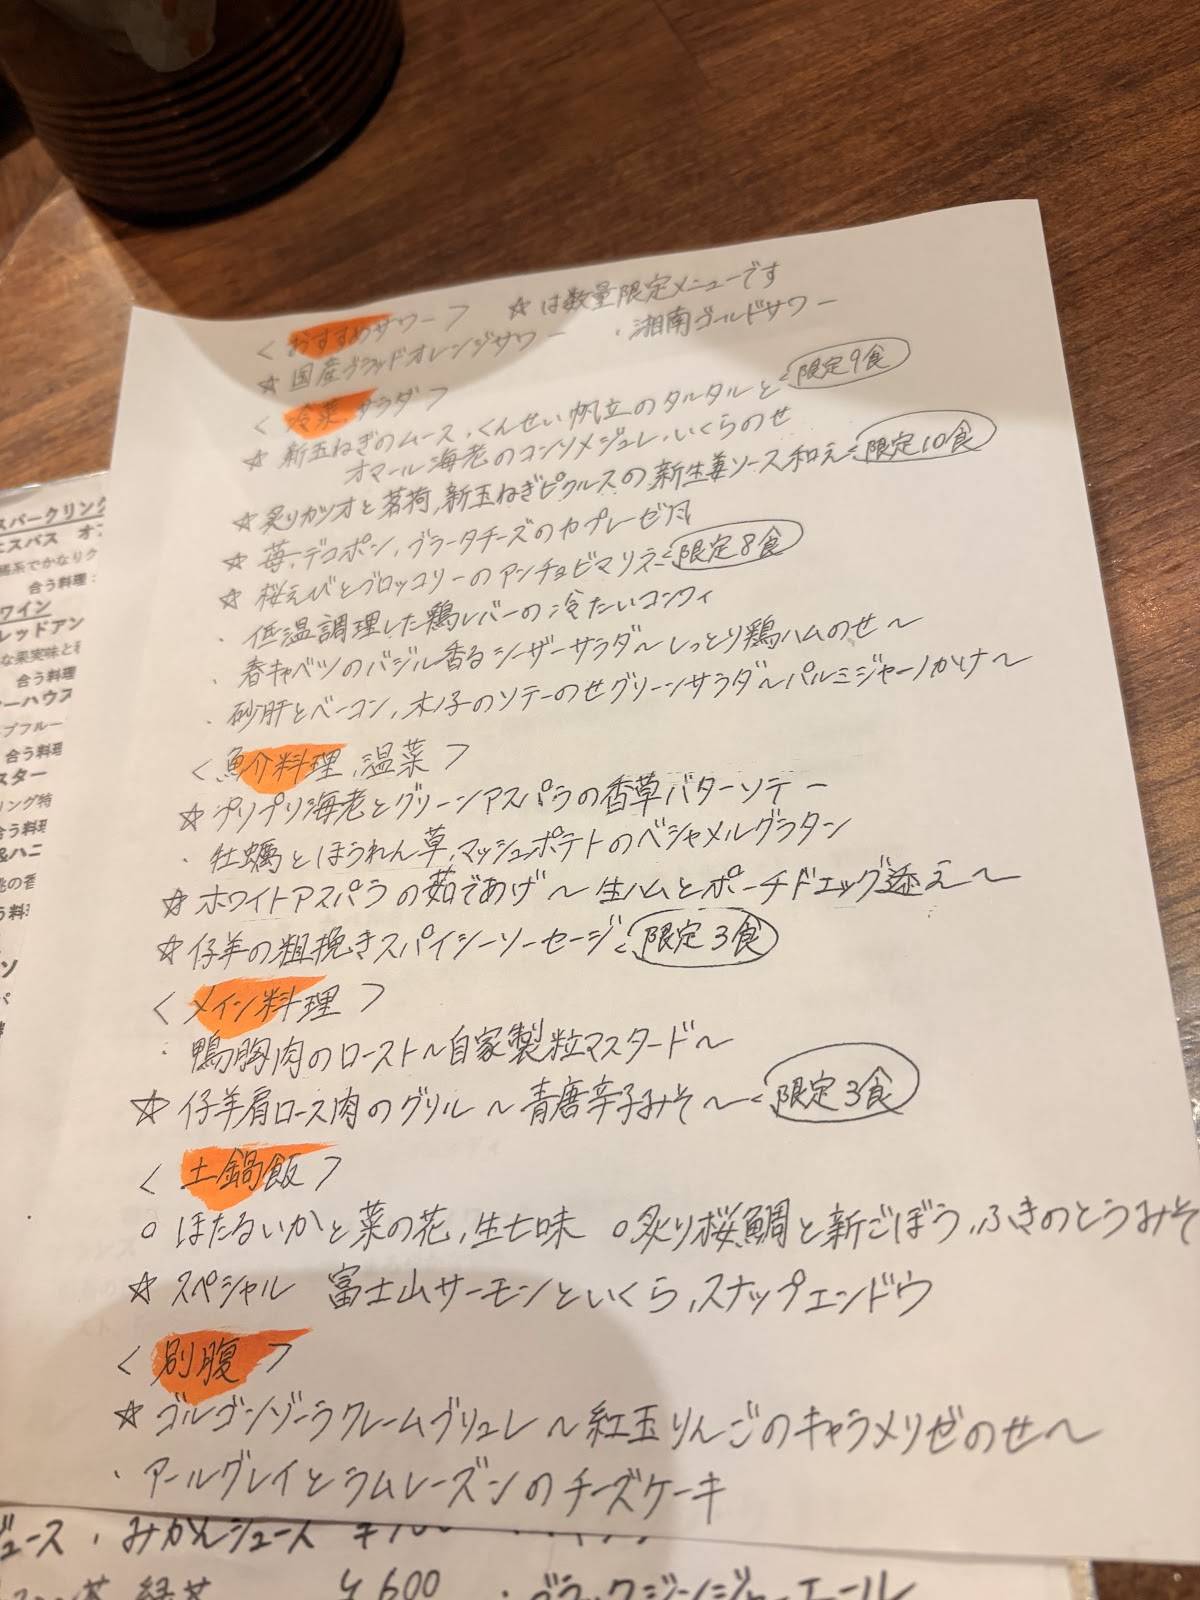 <おすすめサワー> ☆は数量限定メニューです
☆国産ブラッドオレンジサワー ・湘南ゴールドサワー
<冷菜、サラダ>
☆新玉ねぎのムース、くんせい帆立のタルタルと 限定9食
オマール海老のコンソメジュレ、いくらのせ
☆炙りカツオと茗荷、新玉ねぎピクルスの新生姜ソース和え 限定10食
☆苺、デコポン、ブラータチーズのカプレーゼ風
☆桜えびとブロッコリーのアンチョビマリネ 限定8食
・低温調理した鶏レバーの冷たいコンフィ
・春キャベツのバジル香るシーザーサラダ～しっとり鶏ハムのせ～
・砂肝とベーコン、木ノ子のソテーのせグリーンサラダ～パルミジャーノかけ～
<魚介料理、温菜>
☆プリプリ海老とグリーンアスパラの香草バターソテー
・牡蠣とほうれん草、マッシュポテトのベシャメルグラタン
☆ホワイトアスパラの茹であげ～生ハムとポーチドエッグ添え～
☆仔羊の粗挽きスパイシーソーセージ 限定3食
<メイン料理>
・鴨胸肉のロースト～自家製粒マスタード～
☆仔羊肩ロース肉のグリル～青唐辛子みそ～ 限定3食
<土鍋飯>
○ほたるいかと菜の花、生七味 ○炙り桜鯛と新ごぼう、ふきのとうみそ
☆スペシャル 富士山サーモンといくら、スナップエンドウ
<別腹>
☆ゴルゴンゾーラクレームブリュレ～紅玉りんごのキャラメリゼのせ～
・アールグレイとラムレーズンのチーズケーキ
ュース・みかんジュース
緑茶 ¥600 ・ブラックジンジャーエール
スパークリング
エスパス
合う料理:
ワイン
レッドアン
な果実味と
合う料理
ーハウス
プフルー
合う料理
スター
リング特
合う料理
&ハニ
桃の香